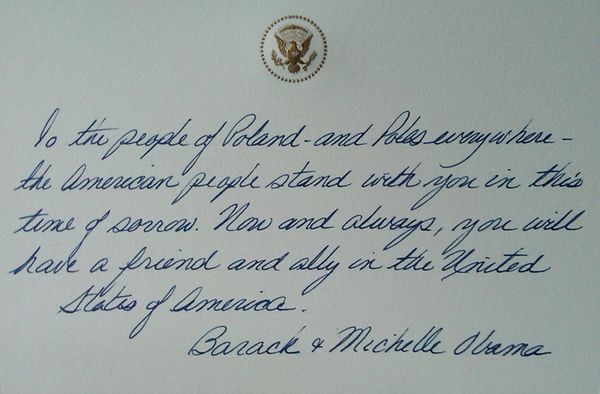 To the people of Poland - and Poles everywhere -
the American people stand with you in this
time of sorrow. Now and always, you will
have a friend and ally in the United
States of America.
Barack & Michelle Obama